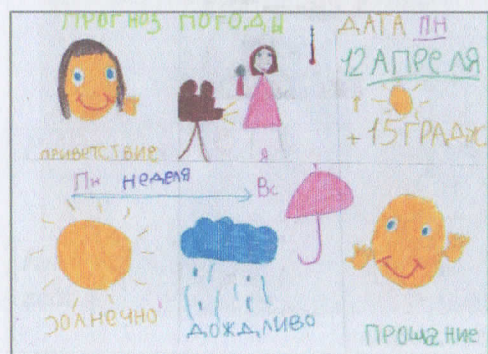 ПРОГНОЗ ПОГОДЫ
ДАТА ПН
12 АПРЕЛЯ
+15 ГРАДУС
ПРИВЕТСТВИЕ
Я
ПН НЕДЕЛЯ ВС
СОЛНЕЧНО
ДОЖДЛИВО
ПРОЩАНИЕ